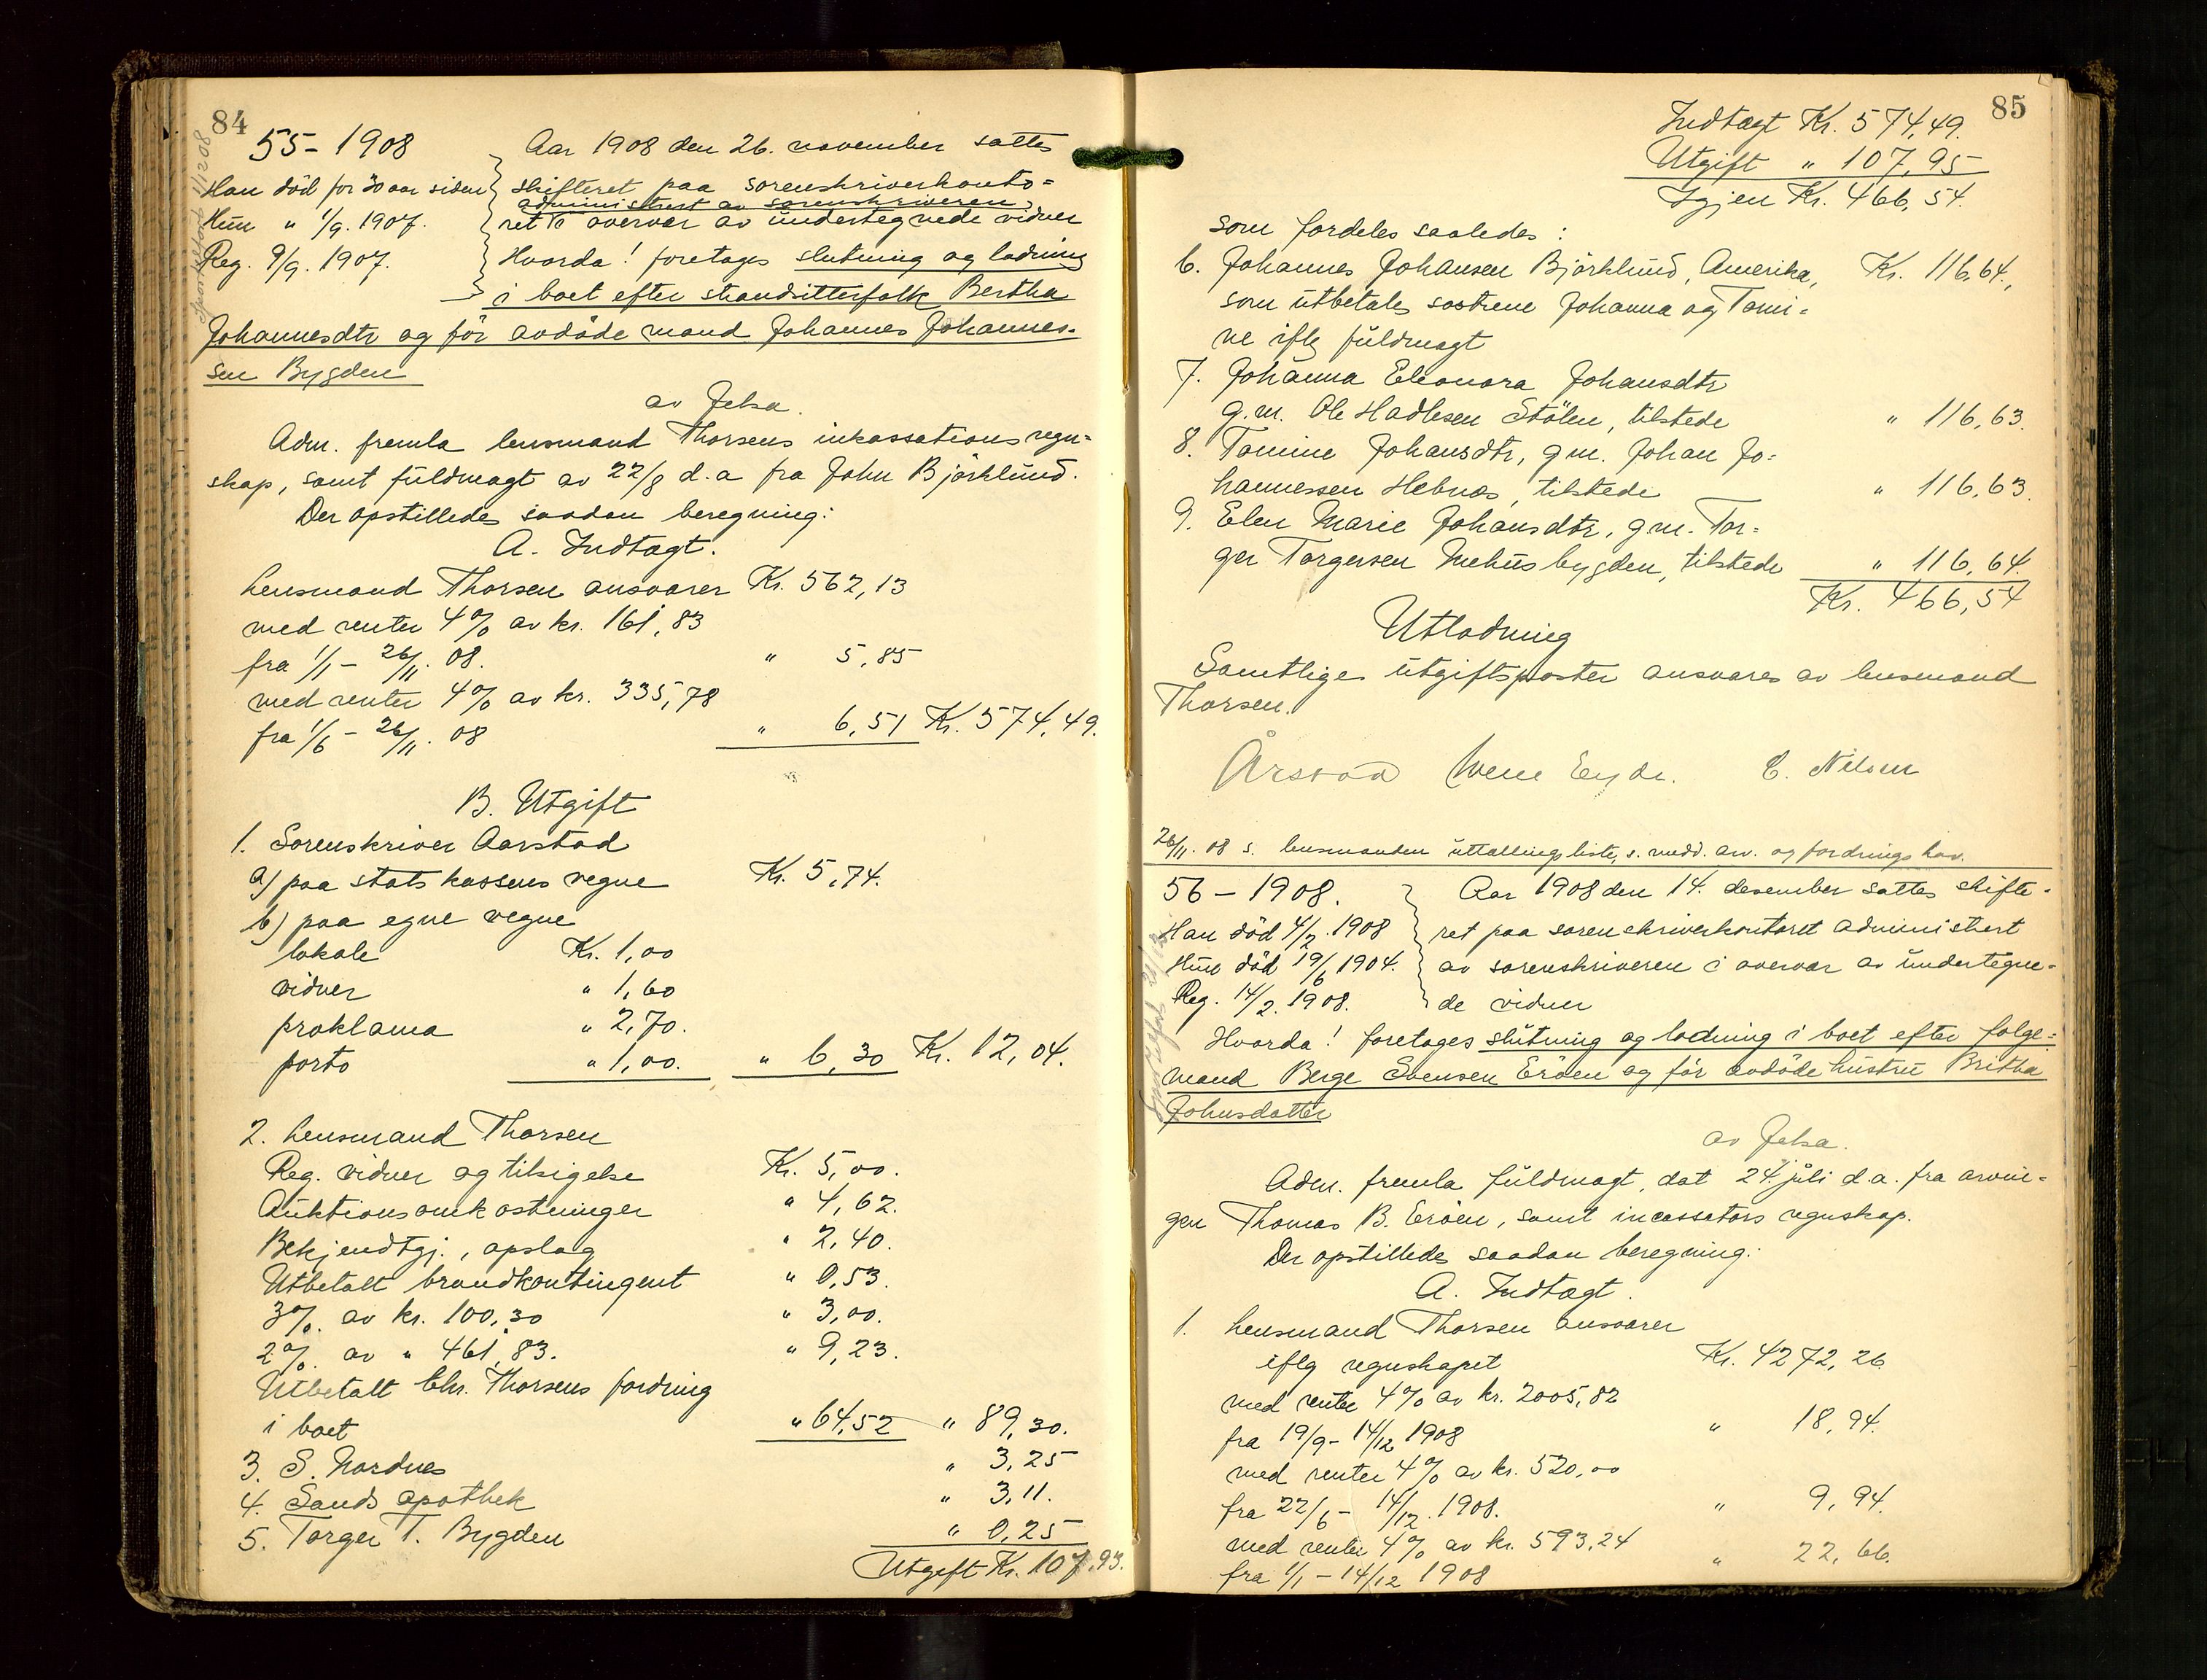 84
55 - 1908
Han död for 30 aar siden
Hun " 1/9. 1907.
Reg. 9/9. 1907.
Aar 1908 den 26. november sattes
skifteret paa sorenskriverkonto=
administrert av sorenskriveren,
ret i overvær av undertegnede vidner
Hvorda! foretages slutning og lodning
i boet efter strandsitterfolk Bertha
Johannesdtr og før avdöde mand Johannes Johannes-
sen Bygden
av Jelsa.
Adm. fremla lensmand Thorsens inkassations regn=
skap, samt fuldmagt av 22/8 d.a fra John Bjørklund.
Der opstilledes saadan beregning:
A. Indtægt.
Lensmand Thorsen ansvarer Kr. 562,13
med renter 4% av kr. 161,83
fra 1/1 - 26/11. 08. " 5,85
med renter 4% av kr. 335,78
fra 1/6 - 26/11. 08 " 6,51 Kr. 574,49.
B. Utgift
1. Sorenskriver Aarstad
a) paa statskassens vegne Kr. 5,74.
b) paa egne vegne
lokale Kr. 1,00
vidner " 1,60
proklama " 2,70.
porto " 1,00. " 6,30 Kr. 12,04.
2. Lensmand Thorsen
Reg. vidner og tilsigelse Kr. 5,00.
Auktionsomkostninger " 4,62.
Bekjendtgj., opslag " 2,40.
Utbetalt brandkontingent " 0,53.
3% av kr. 100,30 " 3,00.
2% av " 461,83. " 9,23.
Utbetalt Chr. Thorsens fordring
i boet " 64,52 " 89,30.
3. S. Nordnes " 3,25
4. Sands apothek " 3,11.
5. Torger T. Bygden " 0,25
Utgift Kr. 107,93.
85
Indtægt Kr. 574,49.
Utgift " 107,95
Igjen Kr. 466,54.
som fordeles saaledes:
6. Johannes Johansen Björklund, Amerika, Kr. 116,64,
som utbetales søstrene Johanna og Tomi=
ne iflg fuldmagt
7. Johanna Eleonora Johansdtr
g.m. Ole Hadlesen Stölen, tilstede " 116,63.
8. Tomine Johansdtr, g m. Johan Jo=
hannessen Hebnes, tilstede " 116,63.
9. Elen Marie Johansdtr, g m. Tor=
ger Torgersen Mehusbygden, tilstede " 116,64.
Kr. 466,54
Utlodning
Samtlige utgiftsposter ansvares av lensmand
Thorsen.
Årstad Eyde. C. Nilsen
26/11. 08 s. lensmanden uttællingsliste, s. medd. arv. og fordringshav.
56 - 1908.
Han död 4/2. 1908
Hun död 19/6 1904.
Reg. 14/2. 1908.
Aar 1908 den 14. desember sattes skifte-
ret paa sorenskriverkontoret administrert
av sorenskriveren i overvær av undertegne-
de vidner
Hvorda! foretages slutning og lodning i boet efter folge=
mand Berge Svensen Eröen og før avdöde hustru Britha
Johnsdatter
av Jelsa.
Adm. fremla fuldmagt, dat 24. juli d.a. fra arvin-
gen Thomas B. Eröen, samt incassators regnskap.
Der opstilledes saadan beregning:
A. Indtægt.
1. Lensmand Thorsen ansvarer
iflg regnskapet Kr. 4272,26.
med renter 4% av kr. 2005,82
fra 19/9 - 14/12 1908 " 18,94.
med renter 4% av kr. 520,00
fra 22/6 - 14/12. 1908. " 9,94.
med renter 4% av kr. 593,24
fra 1/1 - 14/12 1908 " 22,66.